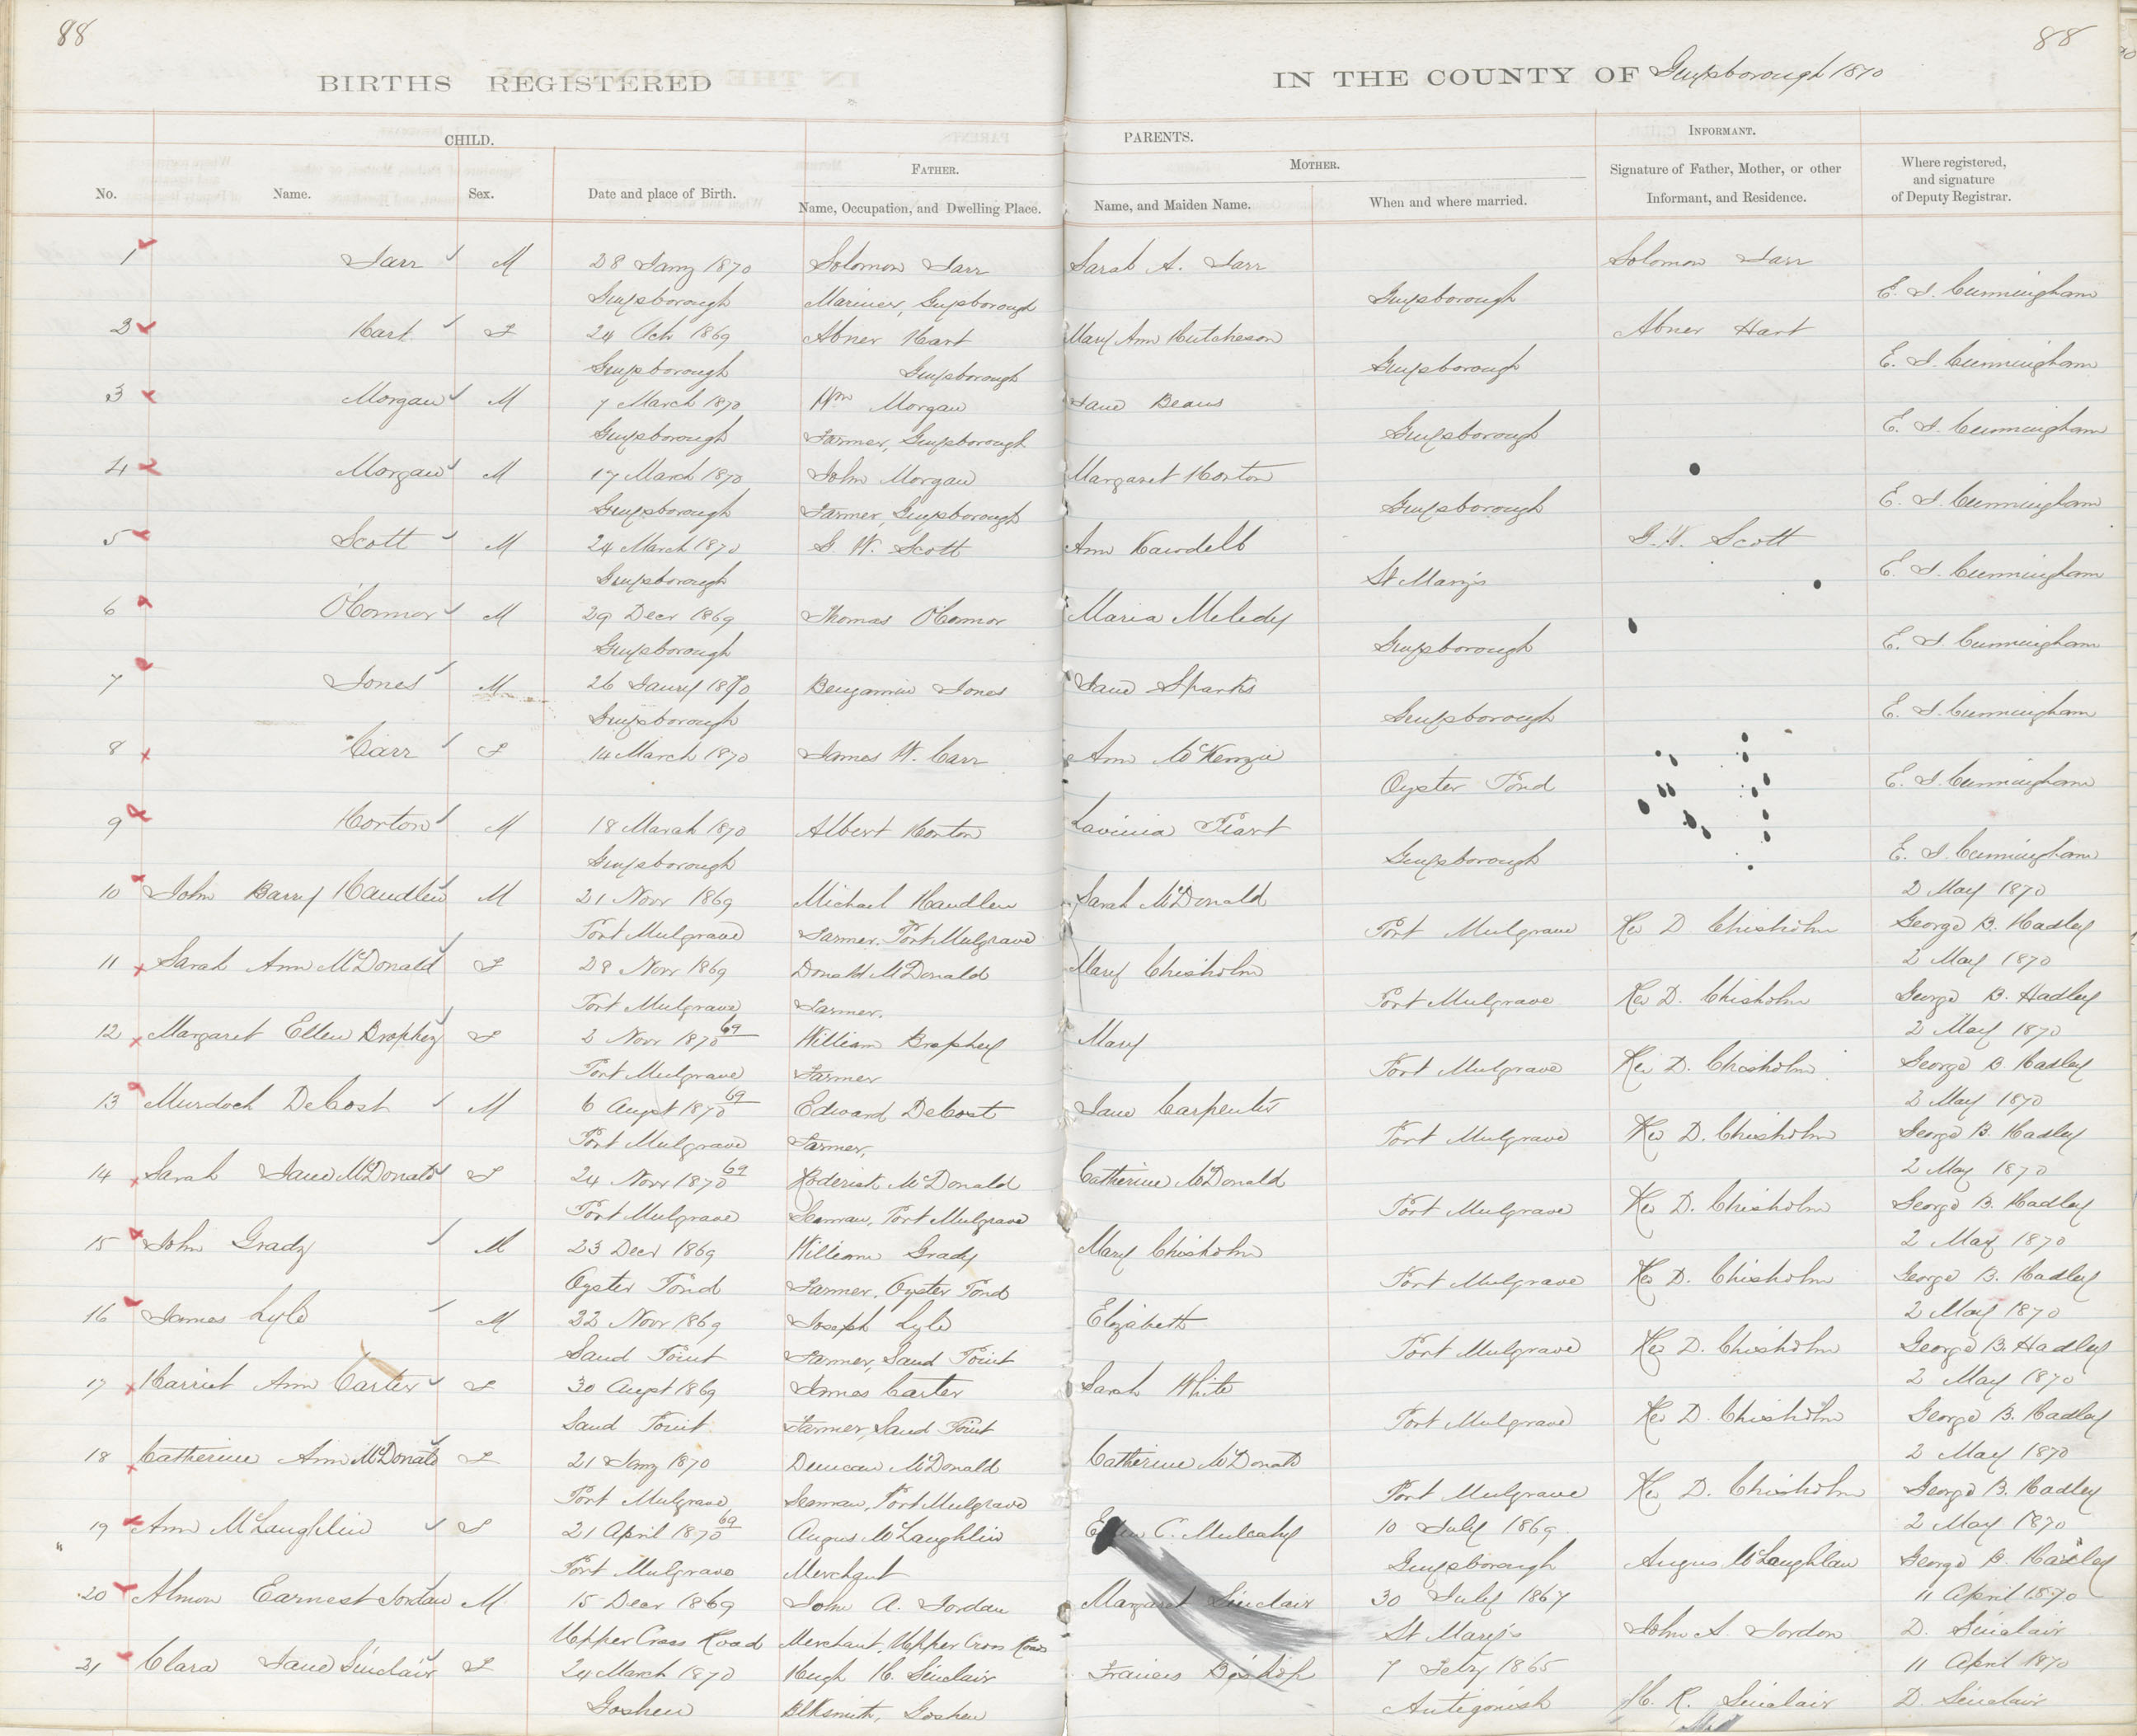 88
88
BIRTHS REGISTERED
IN THE COUNTY OF Guysborough 1870
CHILD.
PARENTS.
INFORMANT.
FATHER.
MOTHER.
No.
Name.
Sex.
Date and place of Birth.
Name, Occupation, and Dwelling Place.
Name, and Maiden Name.
When and where married.
Signature of Father, Mother, or other
Informant, and Residence.
Where registered,
and signature
of Deputy Registrar.
1 Jarr M 28 Jany 1870 Solomon Jarr Sarah A. Jarr Solomon Jarr
Guysborough Mariner, Guysborough Guysborough E. I. Cunningham
2 Hart F 24 Oct 1869 Abner Hart Mary Ann Hutcheson Abner Hart
Guysborough Guysborough Guysborough E. I. Cunningham
3 Morgan M 7 March 1870 Wm Morgan Jane Beans
Guysborough Farmer, Guysborough Guysborough E. I. Cunningham
4 Morgan M 17 March 1870 John Morgan Margaret Horton
Guysborough Farmer, Guysborough Guysborough E. I. Cunningham
5 Scott M 24 March 1870 G. W. Scott Ann G. W. Scott
Guysborough St Mary's E. I. Cunningham
6 O'Connor M 29 Decr 1869 Thomas O'Connor Maria Meledy
Guysborough Guysborough E. I. Cunningham
7 Jones M 26 Jany 1870 Benjamin Jones Jane Sparks
Guysborough Guysborough E. I. Cunningham
8 Carr F 14 March 1870 James W. Carr Ann McKenzie
Oyster Pond E. I. Cunningham
9 Horton M 18 March 1870 Albert Horton Lavinia Peart
Guysborough Guysborough E. I. Cunningham
10 John Barry Handlen M 21 Novr 1869 Michael Handlen Sarah McDonald 2 May 1870
Port Mulgrave Farmer, Port Mulgrave Port Mulgrave Rev D. Chisholm George B. Hadley
11 Sarah Ann McDonald F 28 Novr 1869 Donald McDonald Mary Chisholm 2 May 1870
Port Mulgrave Farmer. Port Mulgrave Rev D. Chisholm George B. Hadley
12 Margaret Ellen Brophey F 2 Novr 1870 69 William Brophey Mary 2 May 1870
Port Mulgrave Farmer Port Mulgrave Rev D. Chisholm George B. Hadley
13 Murdoch DeCost M 6 Augst 1870 69 Edward DeCost Jane Carpenter 2 May 1870
Port Mulgrave Farmer, Port Mulgrave Rev D. Chisholm George B. Hadley
14 Sarah Jane McDonald F 24 Novr 1870 69 Roderick McDonald Catherine McDonald 2 May 1870
Port Mulgrave Seaman, Port Mulgrave Port Mulgrave Rev D. Chisholm George B. Hadley
15 John Grady M 23 Decr 1869 William Grady Mary Chisholm 2 May 1870
Oyster Pond Farmer, Oyster Pond Port Mulgrave Rev D. Chisholm George B. Hadley
16 James Lyle M 22 Novr 1869 Joseph Lyle Elizabeth 2 May 1870
Sand Point Farmer, Sand Point Port Mulgrave Rev D. Chisholm George B. Hadley
17 Harriet Ann Carter F 30 Augst 1869 James Carter Sarah White 2 May 1870
Sand Point Farmer, Sand Point Port Mulgrave Rev D. Chisholm George B. Hadley
18 Catherine Ann McDonald F 21 Jany 1870 Duncan McDonald Catherine McDonald 2 May 1870
Port Mulgrave Seaman, Port Mulgrave Port Mulgrave Rev D. Chisholm George B. Hadley
19 Ann McLaughlin F 21 April 1870 69 Angus McLaughlin Ellen C. Mulcahy 10 July 1869 2 May 1870
Port Mulgrave Merchant Guysborough Angus McLaughlan George B. Hadley
20 Almon Earnest Jordan M 15 Decr 1869 John A. Jordan Margaret Sinclair 30 July 1867 11 April 1870
Upper Cross Road Merchant, Upper Cross Road St Mary's John A. Jordon D. Sinclair
21 Clara Jane Sinclair F 24 March 1870 Hugh H. Sinclair Frances Bishop 7 Feby 1865 11 April 1870
Goshen BlKsmith, Goshen Antigonish H. R. Sinclair D. Sinclair